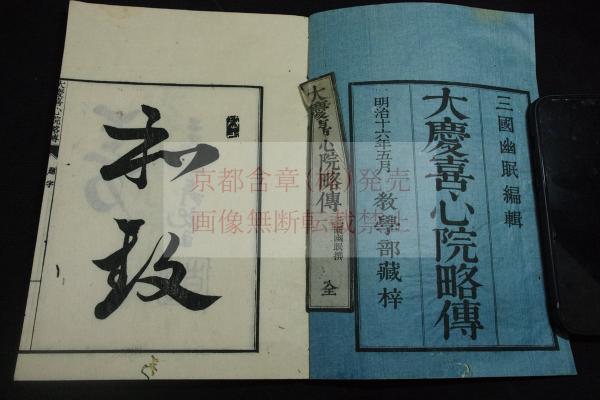 三國幽眠編輯
大慶喜心院略傳
明治十六年五月 教學部藏梓
大慶喜心院略傳 三國幽眠撰 全
大慶喜心院略傳 題字
京都含章(株)発売
画像無断転載禁止